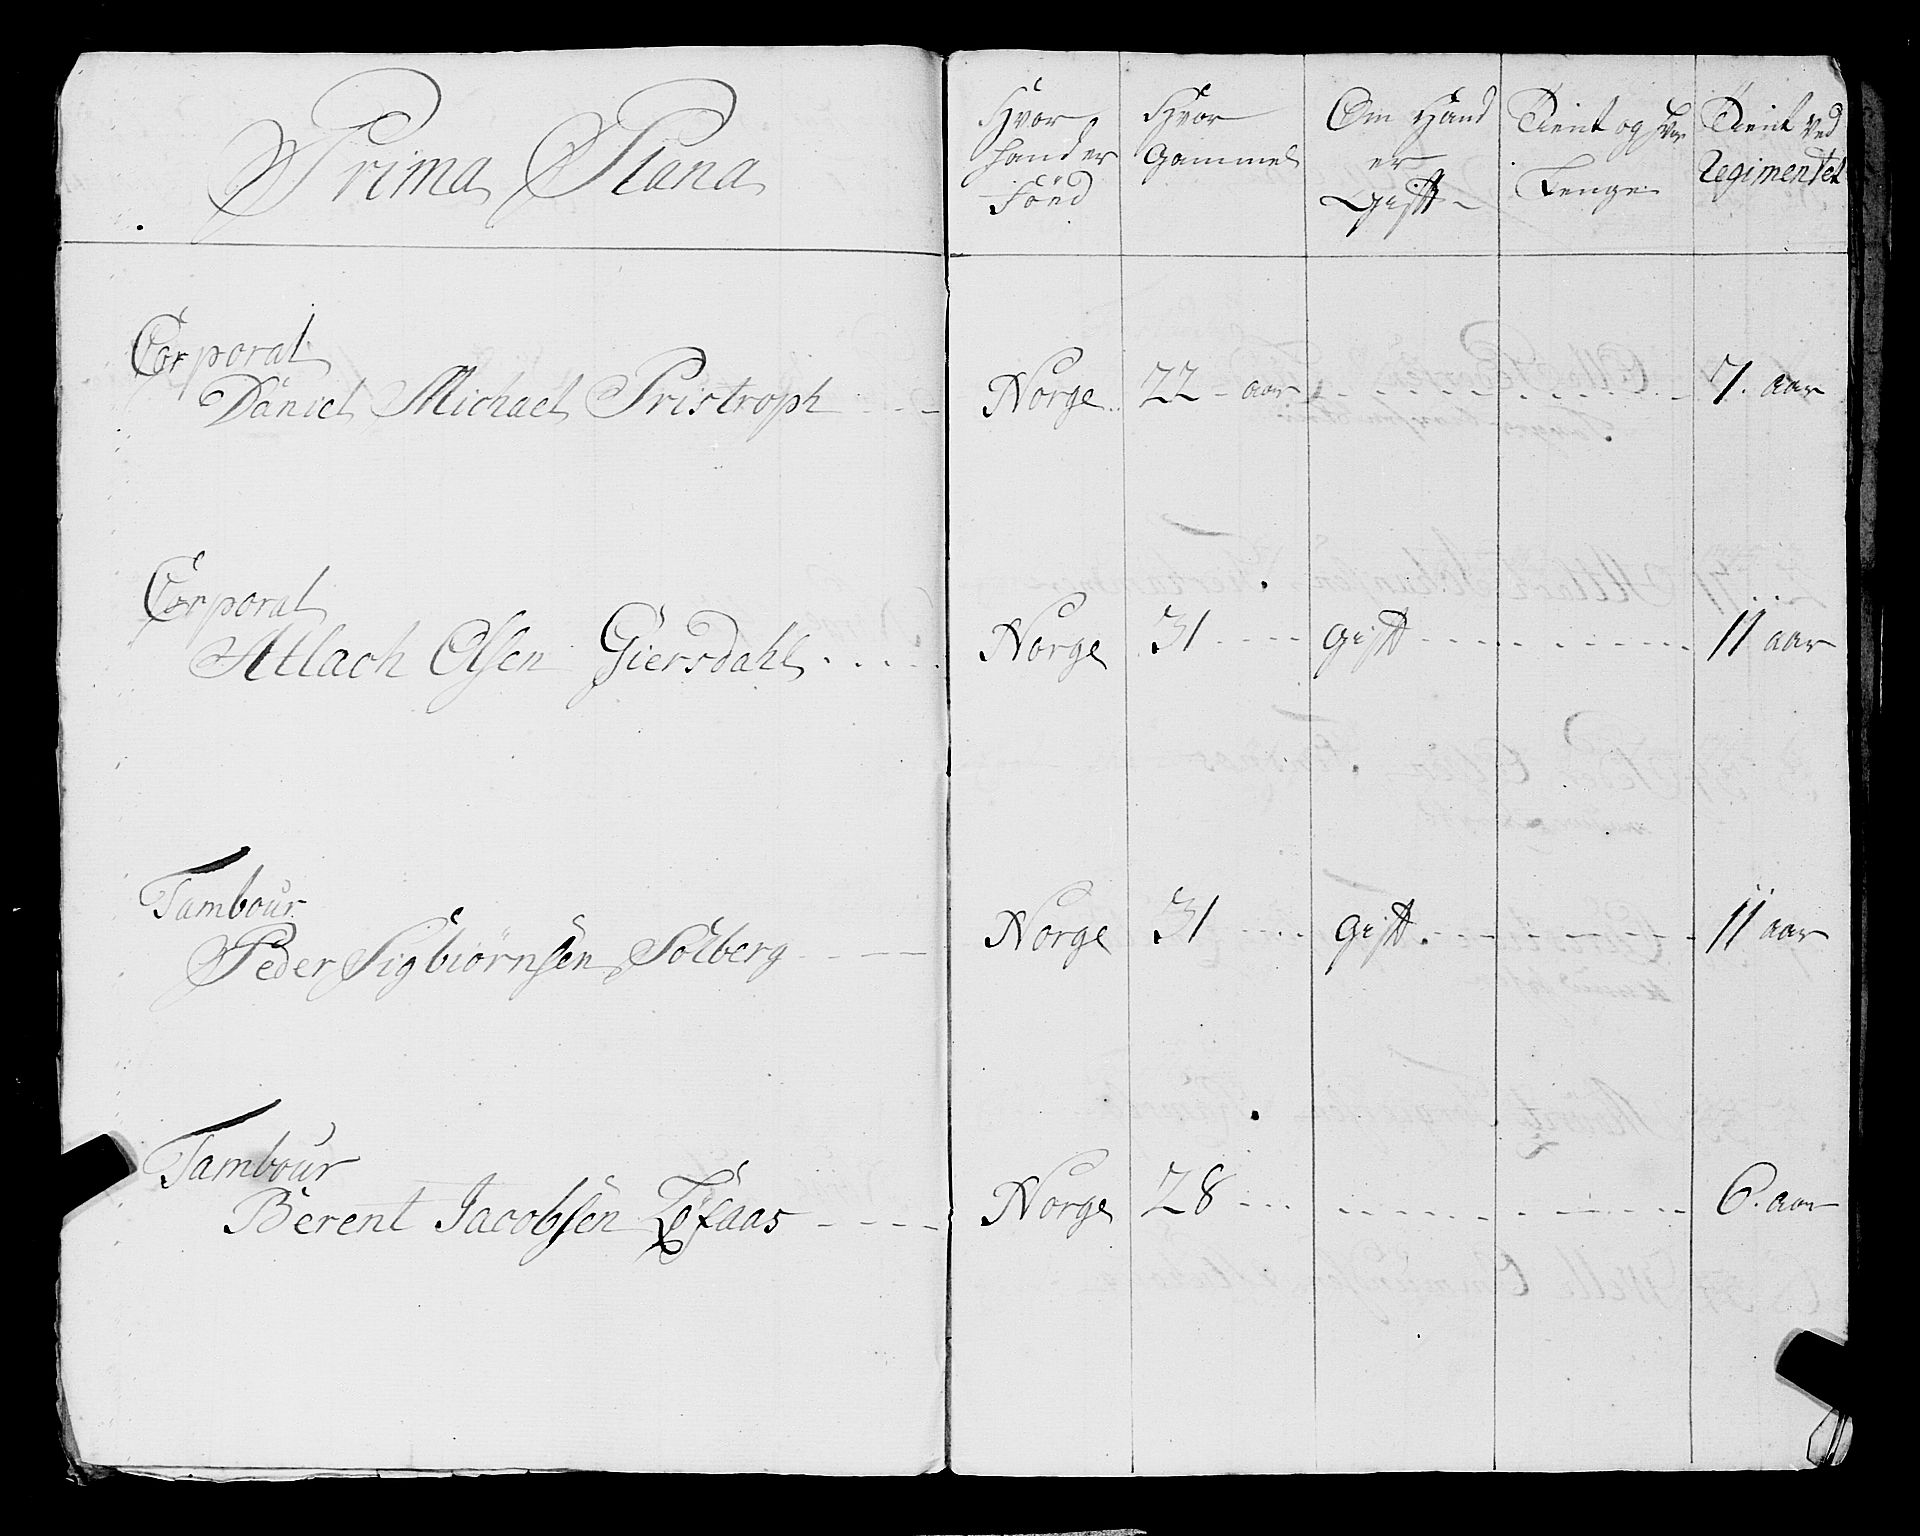 Prima Plana
Hvor
hand er
Född
Hvor
Gammel
Om Hand
er
Gift
Tient og hvor
Lenge
Tient ved
Regimentet
Corporal
Daniel Michael Pristroph Norge 22 aar 7. aar
Corporal
Atlach Olsen Giersdahl Norge 31 Gift 11 aar
Tambour
Peder Sigbiörnsen Solberg Norge 31 Gift 11 aar
Tambour
Berent Jacobsen Norge 28 6. aar